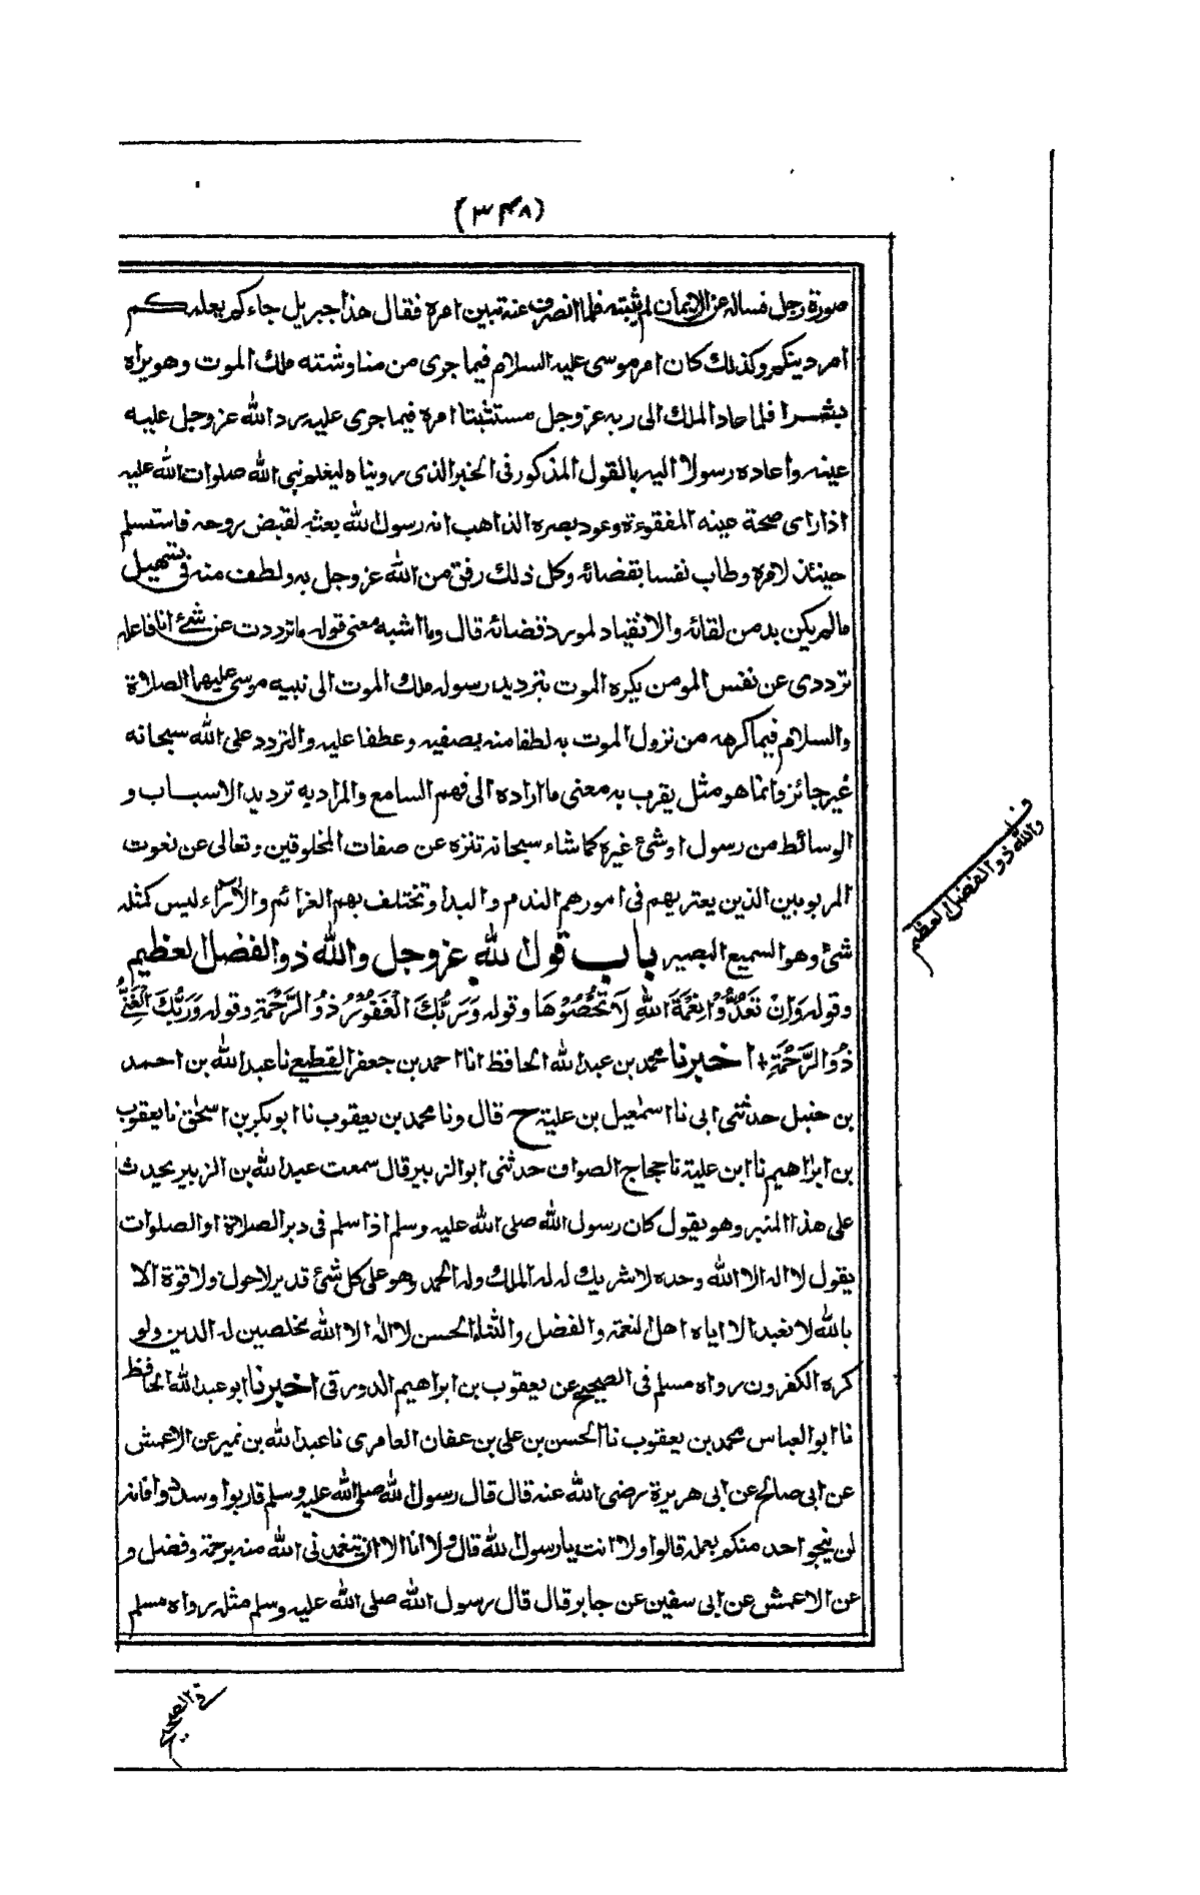 (٣٤٨)
صورة رجل فساله عن الايمان لم يثبته فلما انصرف عنه تبين امره فقال هذا جبريل جاءكم يعلمكم
امر دينكم وكذلك كان امر موسى عليه السلام فيما جرى من مناوشته ملك الموت وهو يراه
بشرا فلما عاد الملك الى ربه عز وجل مستثبتا امره فيما جرى عليه رد الله عز وجل عليه
عينه واعاده رسولا اليه بالقول المذكور فى الخبر الذى رويناه ليعلم نبى الله صلوات الله عليه
اذا راى صحة عينه المفقوءة وعود بصره الذاهب انه رسول الله بعثه لقبض روحه فاستسلم
حينئذ لامره وطاب نفسا بقضائه وكل ذلك رفق من الله عز وجل به ولطف منه فى تسهيل
مالم يكن بد من لقائه والانقياد لمورد قضائه قال وما اشبه معنى قوله ما ترددت عن شئ انا فاعله
ترددى عن نفس المومن يكره الموت بترديد رسوله ملك الموت الى نبيه موسى عليهما الصلاة
والسلام فيما كرهه من نزول الموت به لطفا منه بصفيه وعطفا عليه والتردد على الله سبحانه
غير جائز وانما هو مثل يقرب به معنى ما اراده الى فهم السامع والمراد به ترديد الاسباب و
الوسائط من رسول او شئ غيره كما شاء سبحانه تنزه عن صفات المخلوقين وتعالى عن نعوت
المربوبين الذين يعتريهم فى امورهم الندم والبدا وتختلف بهم العزائم والاراء ليس كمثله
شئ وهو السميع البصير باب قول الله عز وجل والله ذو الفضل العظيم
وقوله وَاِنْ تَعُدُّوْا نِعْمَةَ اللهِ لَا تُحْصُوْهَا وقوله وَرَبُّكَ الْغَفُوْرُ ذُو الرَّحْمَةِ وقوله وَرَبُّكَ الْغَنِىُّ
ذُوْ الرَّحْمَةِ اخبرنا محمد بن عبد الله الحافظ انا احمد بن جعفر القطيعى نا عبد الله بن احمد
بن حنبل حدثنى ابى نا اسمٰعيل بن علية ح قال ونا محمد بن يعقوب نا ابو بكر بن اسحٰق نا يعقوب
بن ابراهيم نا ابن علية نا حجاج الصواف حدثنى ابو الزبير قال سمعت عبد الله بن الزبير يحدث
على هذا المنبر وهو يقول كان رسول الله صلى الله عليه وسلم اذا سلم فى دبر الصلاة او الصلوات
يقول لا اله الا الله وحده لا شريك له له الملك وله الحمد وهو على كل شئ قدير لا حول ولا قوة الا
بالله لا نعبد الا اياه اهل النعمة والفضل والثناء الحسن لا اله الا الله مخلصين له الدين ولو
كره الكفرون رواه مسلم فى الصحيح عن يعقوب بن ابراهيم الدورقى اخبرنا ابو عبد الله الحافظ
نا ابو العباس محمد بن يعقوب نا الحسن بن على بن عفان العامرى نا عبد الله بن نمير عن الاعمش
عن ابى صالح عن ابى هريرة رضى الله عنه قال قال رسول الله صلى الله عليه وسلم قاربوا وسددوا فانه
لن ينجو احد منكم بعمله قالوا ولا انت يا رسول الله قال ولا انا الا ان يتغمدنى الله منه برحمة وفضل و
عن الاعمش عن ابى سفين عن جابر قال قال رسول الله صلى الله عليه وسلم مثله رواه مسلم
والله ذو الفضل العظيم
فى الصحيح